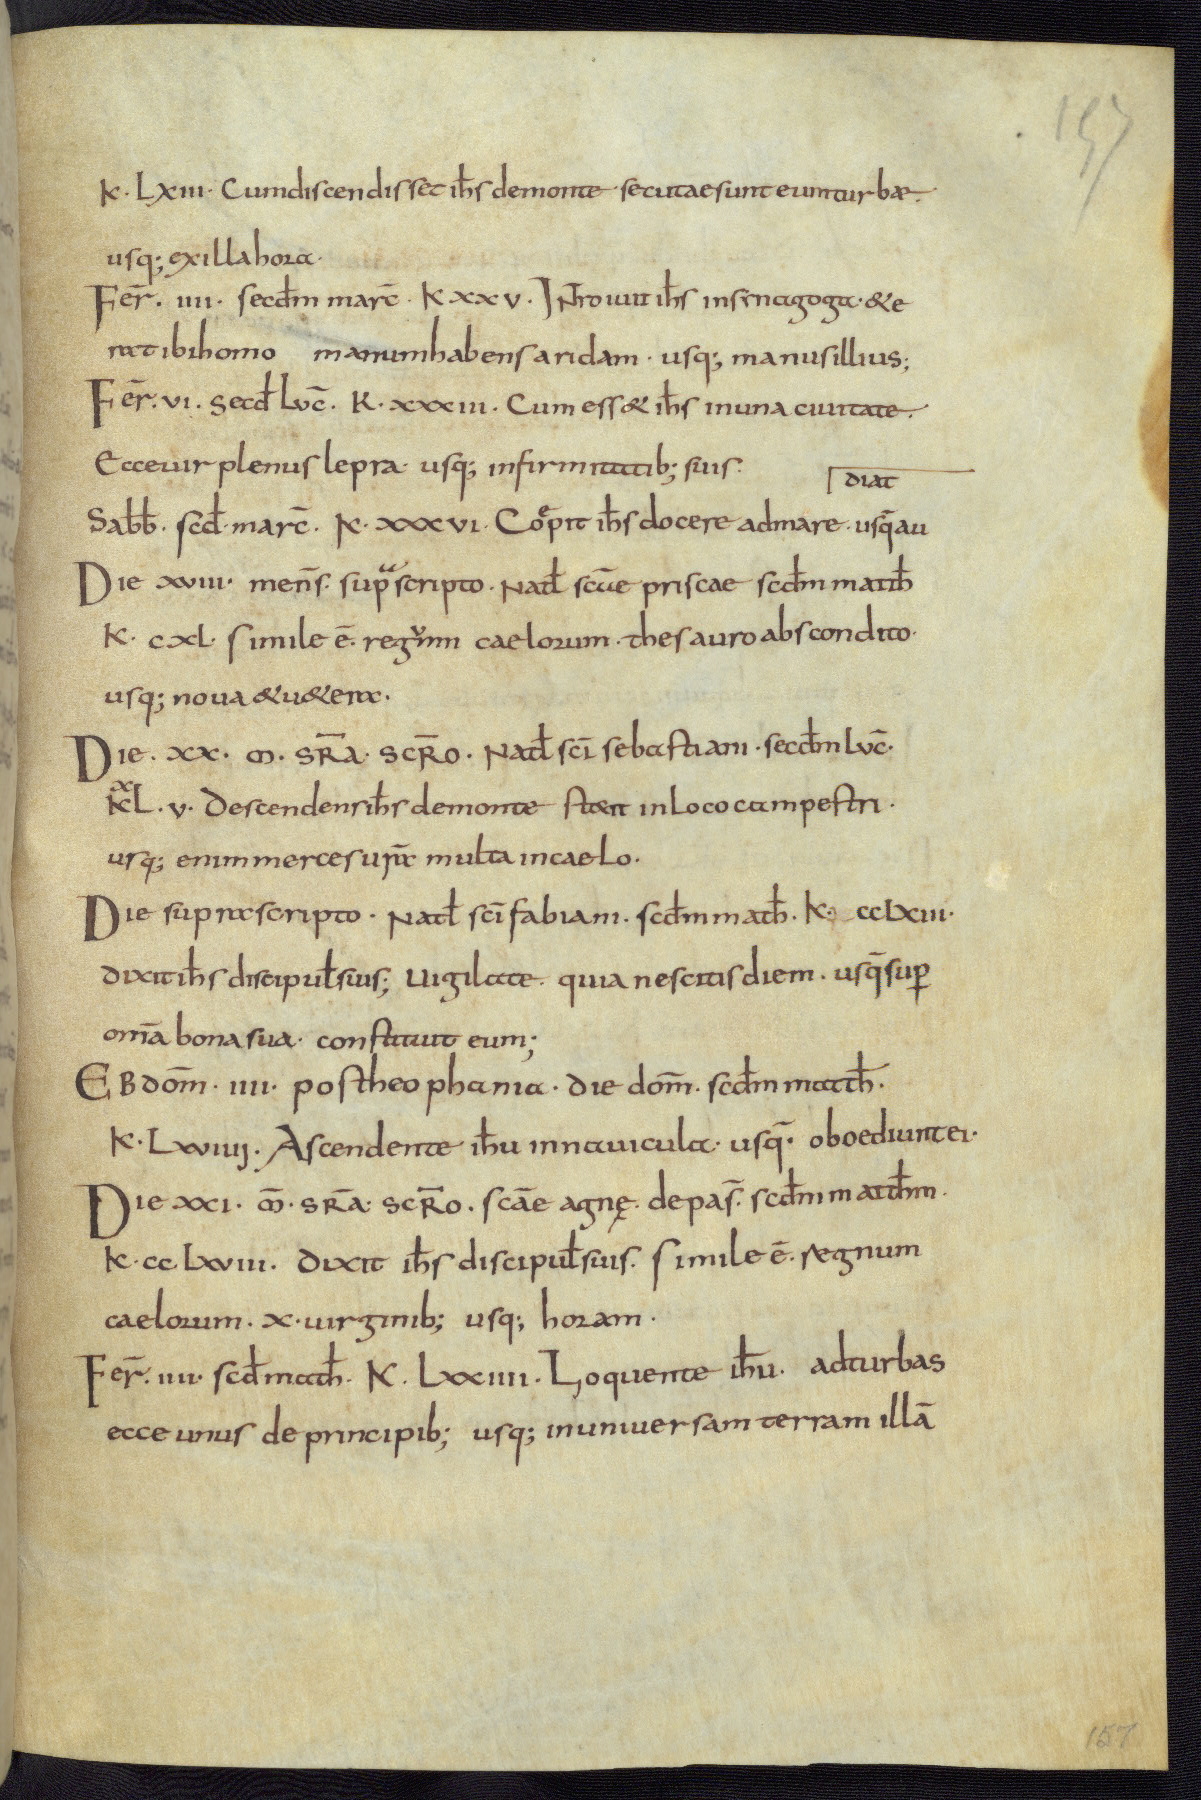 157
K· LXIII· Cumdiscendisset ih̅s demonte secutaesunt eumturbae·
usq; exillahora·
Fer̅· IIII· secdm̅ marc̅· K XXV· INtrouit ih̅s insinagoga·&e
ratibihomo manumhabensaridam· usq; manusillius;
Fer̅· VI· Secd̅ Luc̅· K· XXXIII· Cum ess& ih̅s inuna ciuitate·
Ecceuir plenus lepra· usq; infirmitatib; suis·
diat
Sabb̅· scd̅· marc̅· K· XXXVI· Coepit ih̅s docere admare· usq̅ au
Die XVIII· mens̅· suprascripto· Nat̅ sc̅ae priscae scdm̅ math̅
K· CXL· Simile ē· regnum caelorum· thesauro abscondito·
usq; noua &u&era·
Die· XX· M· SR̅A· SCR̅O· Nat̅ sc̅i sebastiani· secdm̅ Luc̅·
K XL·V· Descendensih̅s demonte stetit inloco campestri·
usq; enimmercesura̅ multa incaelo·
Die supra scripto· Nat̅ sc̅i fabiani· scdm̅ math̅· K· CCLXIII·
dixitih̅s discipul̅ suis; Uigilate· quia nescitis diem· usq̅ sup̅
om̅a bona sua· constituit eum;
EBdom̅· IIII· postheophania· die dom̅· scdm̅ math̅·
K· LXVIIII· Ascendente ih̅u innauicula· usq̅· oboediuntei·
Die XXI· M̅· SR̅A· SCR̅O· sc̅ae agnę· depas̅· scdm̅ matthm̅·
K·CCLXVIII· Dixit ih̅s discipul̅ suis· Simile ē· regnum
caelorum· X·uirginib; usq; horam·
Fer̅· IIII· scd̅ math̅· K· LXXIIII· Loquente ih̅u· adturbas
ecce unus deprincipib; usq; inuniuersam terram illā
157